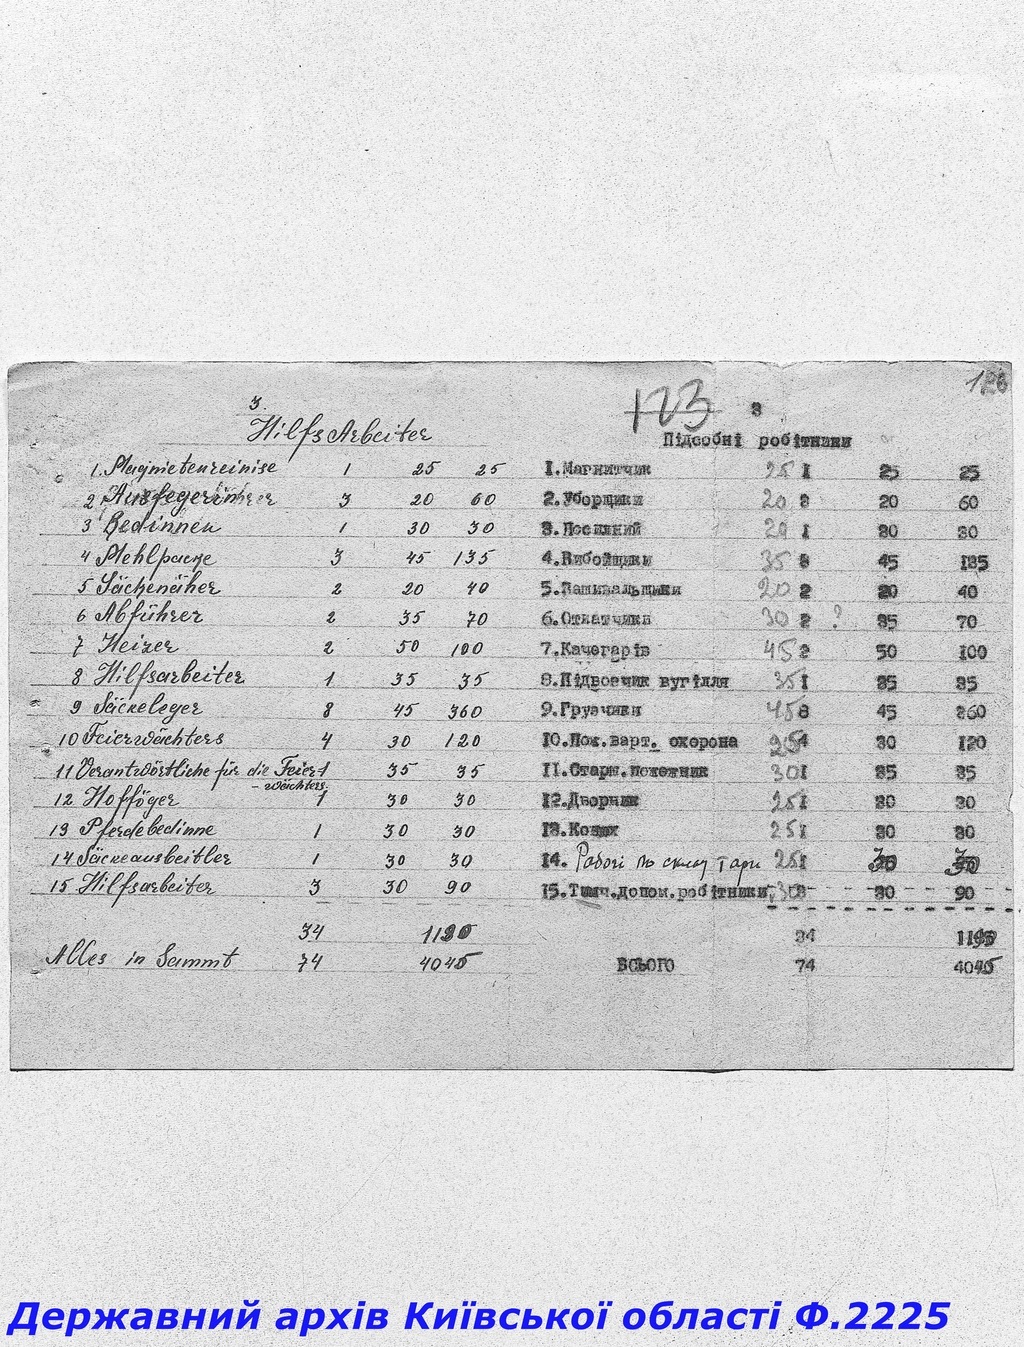 123
3
Hilfs Arbeiter
1. Magnietenreinise 1 25 25
2 3 20 60
3 Bedinnen 1 30 30
4 Mehlpacke 3 45 135
5 Säckenäher 2 20 40
6 Abführer 2 35 70
7 Heizer 2 50 100
8 Hilfsarbeiter 1 35 35
9 Säckeleger 8 45 360
10 Feierwächters 4 30 120
11 Verantwörtliche für die Feier- 1 35 35
- wächters
12 Hofföger 1 30 30
13 Pferdebedinne 1 30 30
14 Säckeausbeitler 1 30 30
15 Hilfsarbeiter 3 30 90
34
Alles in Sammt 74 4045
3
Підсобні робітники
1.Магнитчик 25 1 25 25
2.Уборщики 20 3 20 60
3.Посильний 1 30 30
4.Вибойщики 35 3 45 135
5.Зашивальщики 20 2 20 40
6.Откатчики 30 2 ? 35 70
7.Качегарів 45 2 50 100
8.Підвозчик вугілля 35 1 35 35
9.Грузчики 45 8 45 360
10.Пож.варт. охорона 25 4 30 120
11.Старш.пожежник 30 1 35 35
12.Дворник 25 1 30 30
13.Конюх 25 1 30 30
14. Робочі по складу тари 25 1 30 30
15.Тимч.допом.робітники 30 3 30 90
34
ВСЬОГО 74 4045
Державний архів Київської області Ф.2225